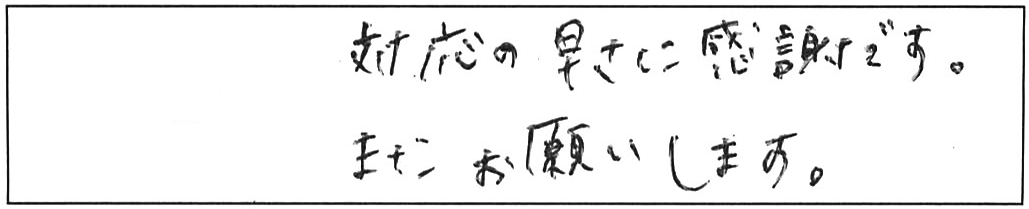 対応の早さに感謝です。
またお願いします。